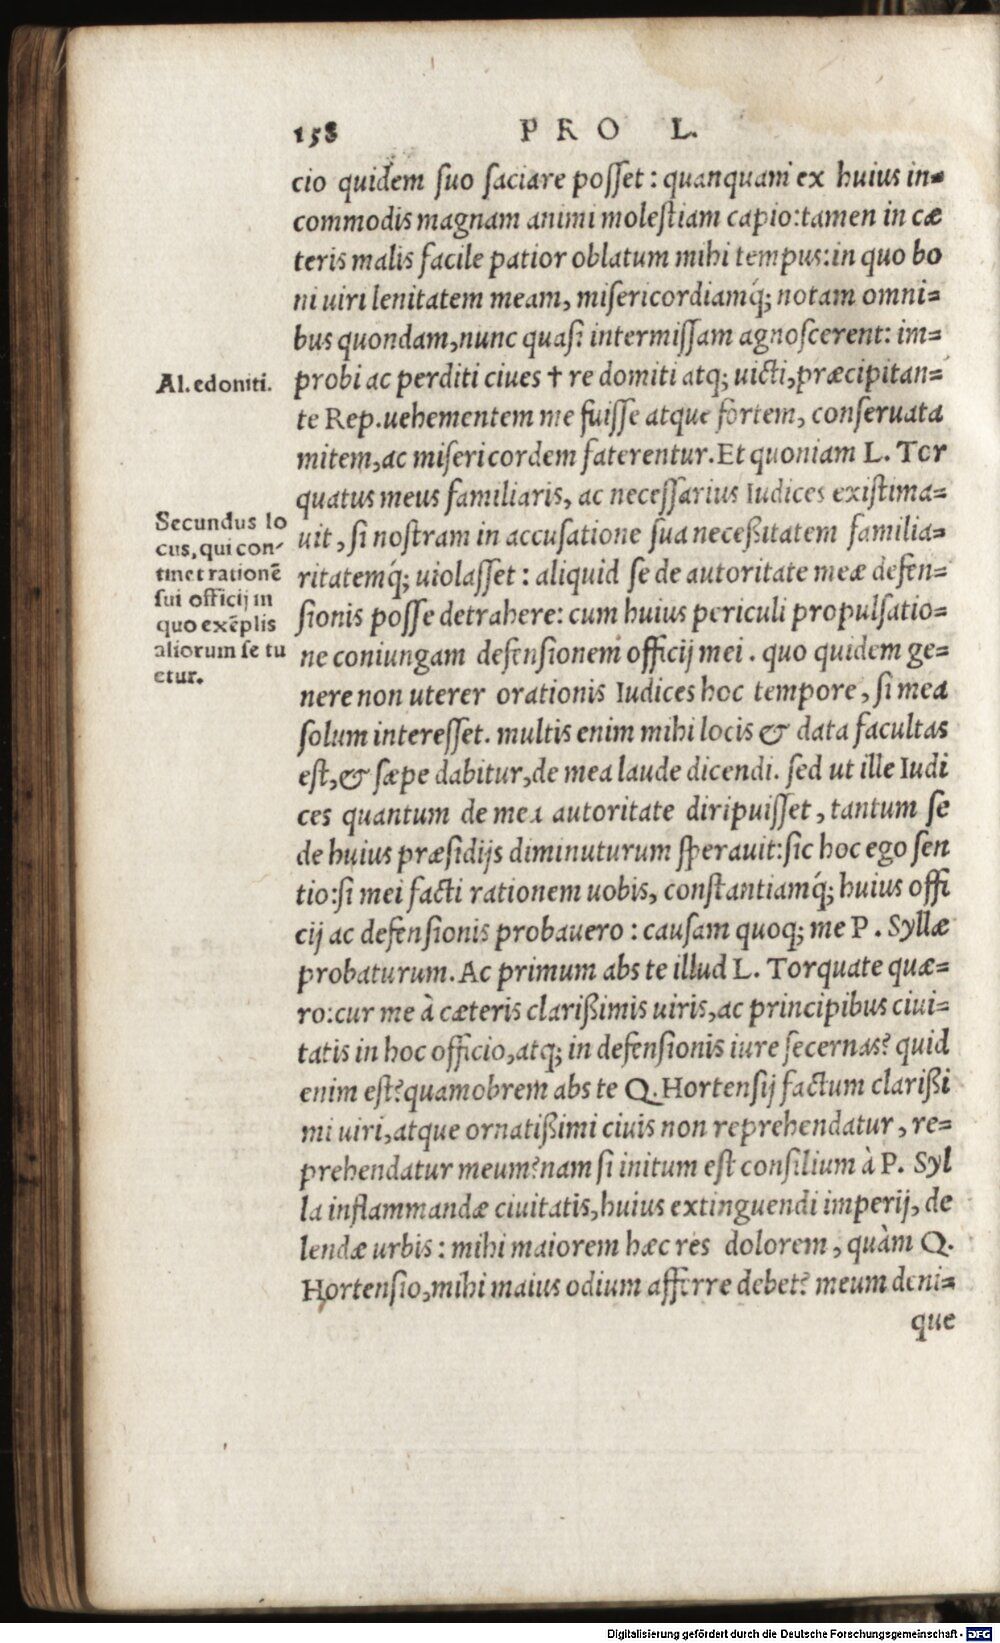 158 PRO L.
cio quidem suo saciare posset: quanquam ex huius in=
commodis magnam animi molestiam capio:tamen in cæ
teris malis facile patior oblatum mihi tempus:in quo bo
ni uiri lenitatem meam, misericordiamq́; notam omni=
bus quondam,nunc quasi intermissam agnoscerent: im=
Al. edoniti.
probi ac perditi ciues † re domiti atq; uicti,præcipitan=
te Rep.uehementem me fuisse atque fortem, conseruata
mitem,ac misericordem faterentur.Et quoniam L. Tor
quatus meus familiaris, ac necessarius Iudices existima=
Secundus lo
cus, qui con-
tinet rationē
sui officij in
quo exēplis
aliorum se tu
etur.
uit, si nostram in accusatione sua neceßitatem familia=
ritatemq́; uiolasset: aliquid se de autoritate meæ defen=
sionis posse detrahere: cum huius periculi propulsatio=
ne coniungam defensionem officij mei. quo quidem ge=
nere non uterer orationis Iudices hoc tempore, si mea
solum interesset. multis enim mihi locis & data facultas
est,& sæpe dabitur,de mea laude dicendi. sed ut ille Iudi
ces quantum de mea autoritate diripuisset, tantum se
de huius præsidijs diminuturum sperauit:sic hoc ego sen
tio:si mei facti rationem uobis, constantiamq́; huius offi
cij ac defensionis probauero: causam quoq; me P. Syllæ
probaturum. Ac primum abs te illud L. Torquate quæ=
ro:cur me à cæteris clarißimis uiris,ac principibus ciui=
tatis in hoc officio,atq; in defensionis iure secernas? quid
enim est?quamobrem abs te Q. Hortensij factum clarißi
mi uiri,atque ornatißimi ciuis non reprehendatur, re=
prehendatur meum?nam si initum est consilium à P. Syl
la inflammandæ ciuitatis,huius extinguendi imperij, de
lendæ urbis: mihi maiorem hæc res dolorem, quàm Q.
Hortensio,mihi maius odium afferre debet? meum deni=
que
Digitalisierung gefördert durch die Deutsche Forschungsgemeinschaft - DFG